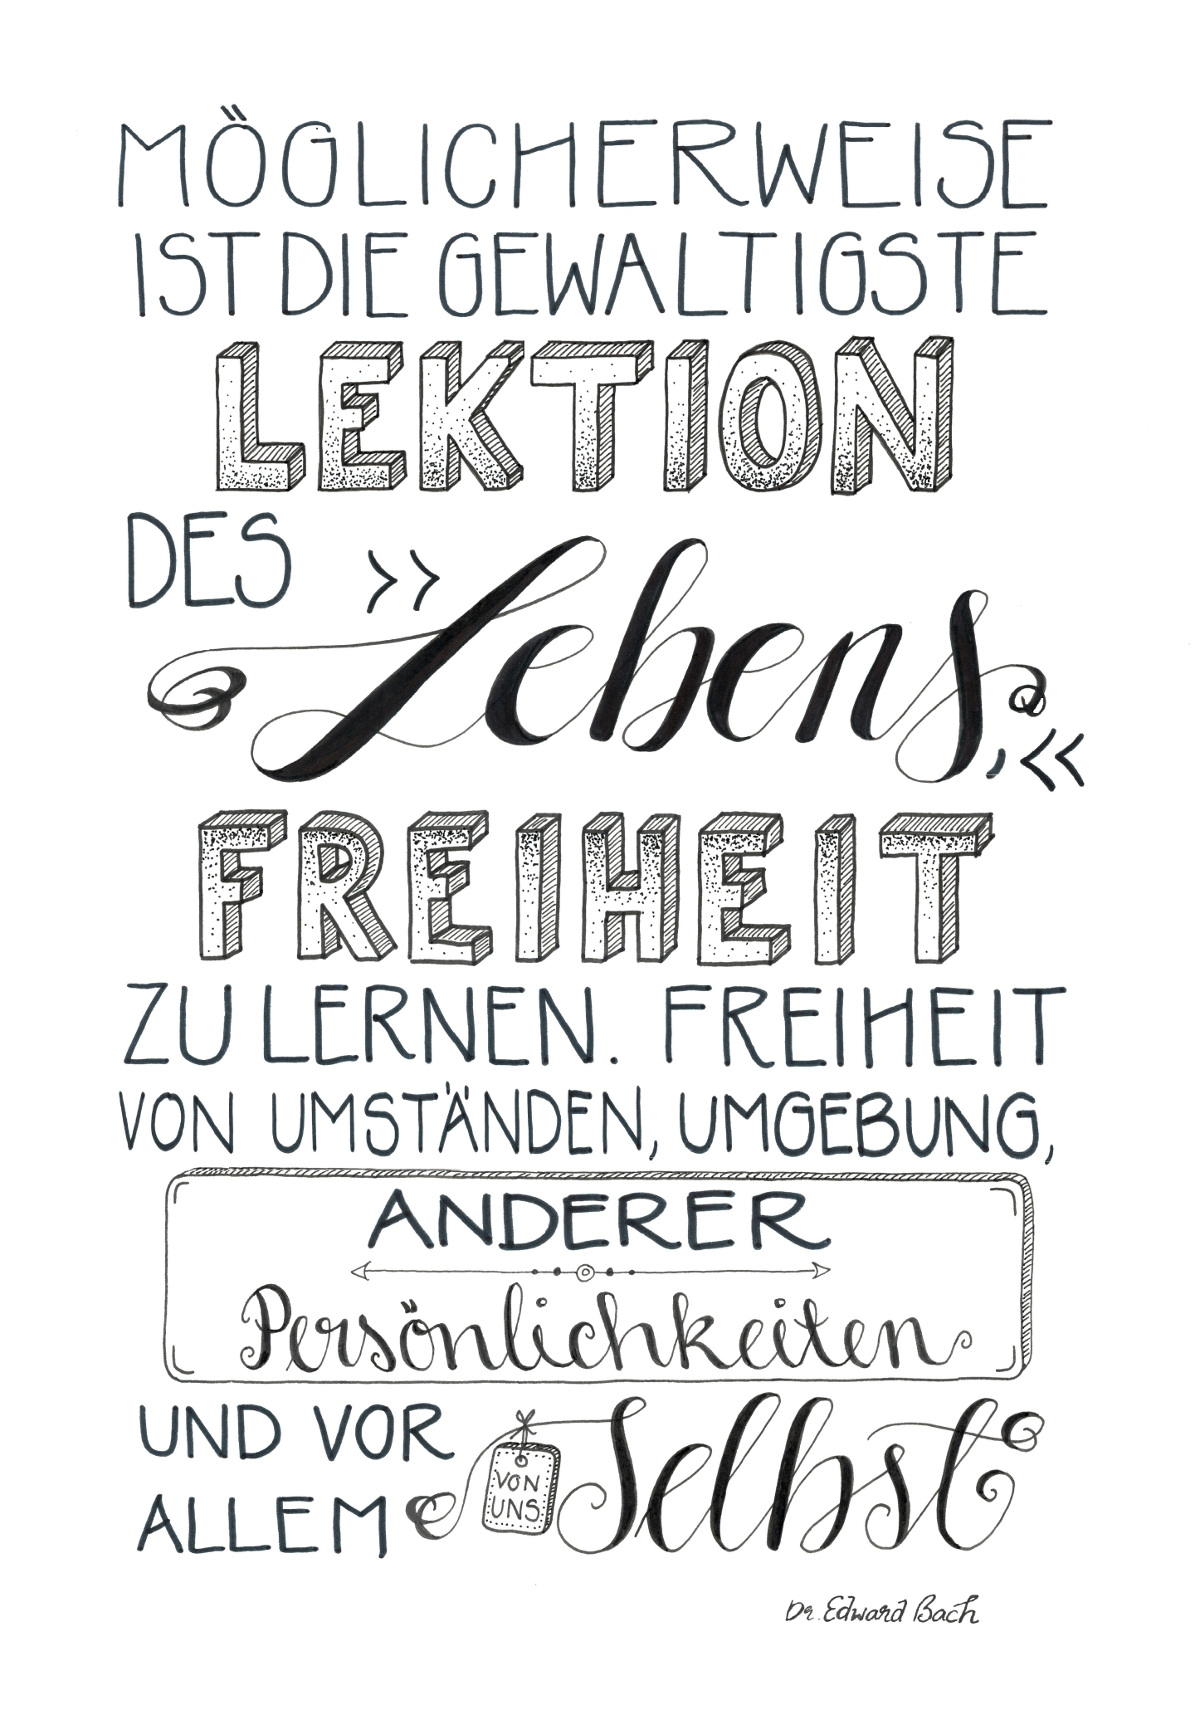 MÖGLICHERWEISE
IST DIE GEWALTIGSTE
LEKTION
DES >> Lebens, <<
FREIHEIT
ZU LERNEN. FREIHEIT
VON UMSTÄNDEN, UMGEBUNG,
ANDERER
Persönlichkeiten
UND VOR
ALLEM VON UNS Selbst
Dr. Edward Bach